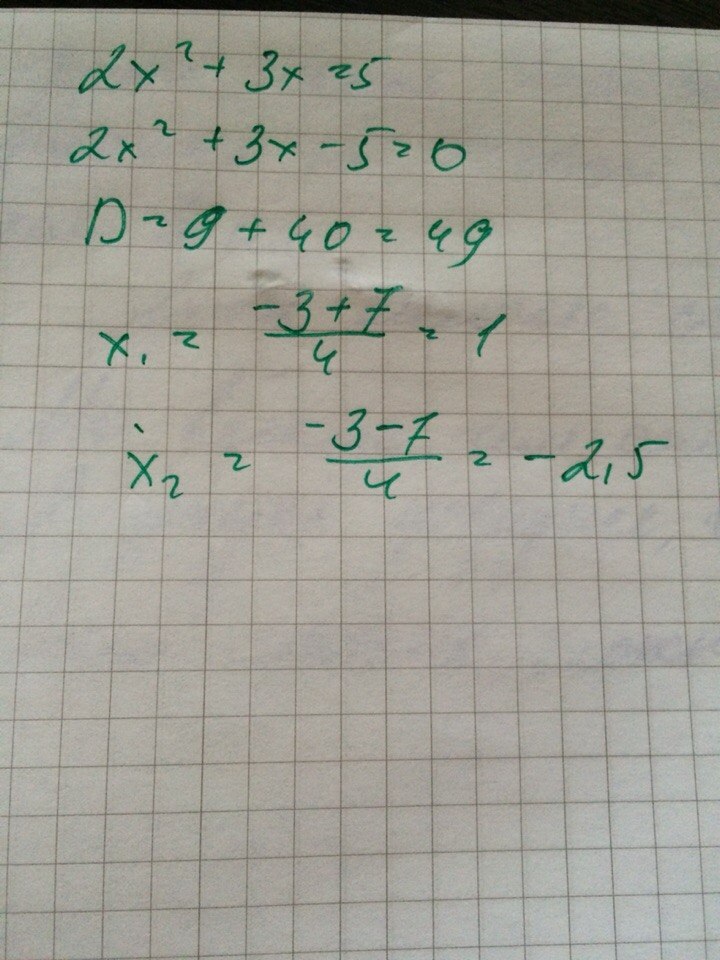 2x² + 3x = 5
2x² + 3x - 5 = 0
D = 9 + 40 = 49
x₁ = (-3+7)/4 = 1
x₂ = (-3-7)/4 = -2,5